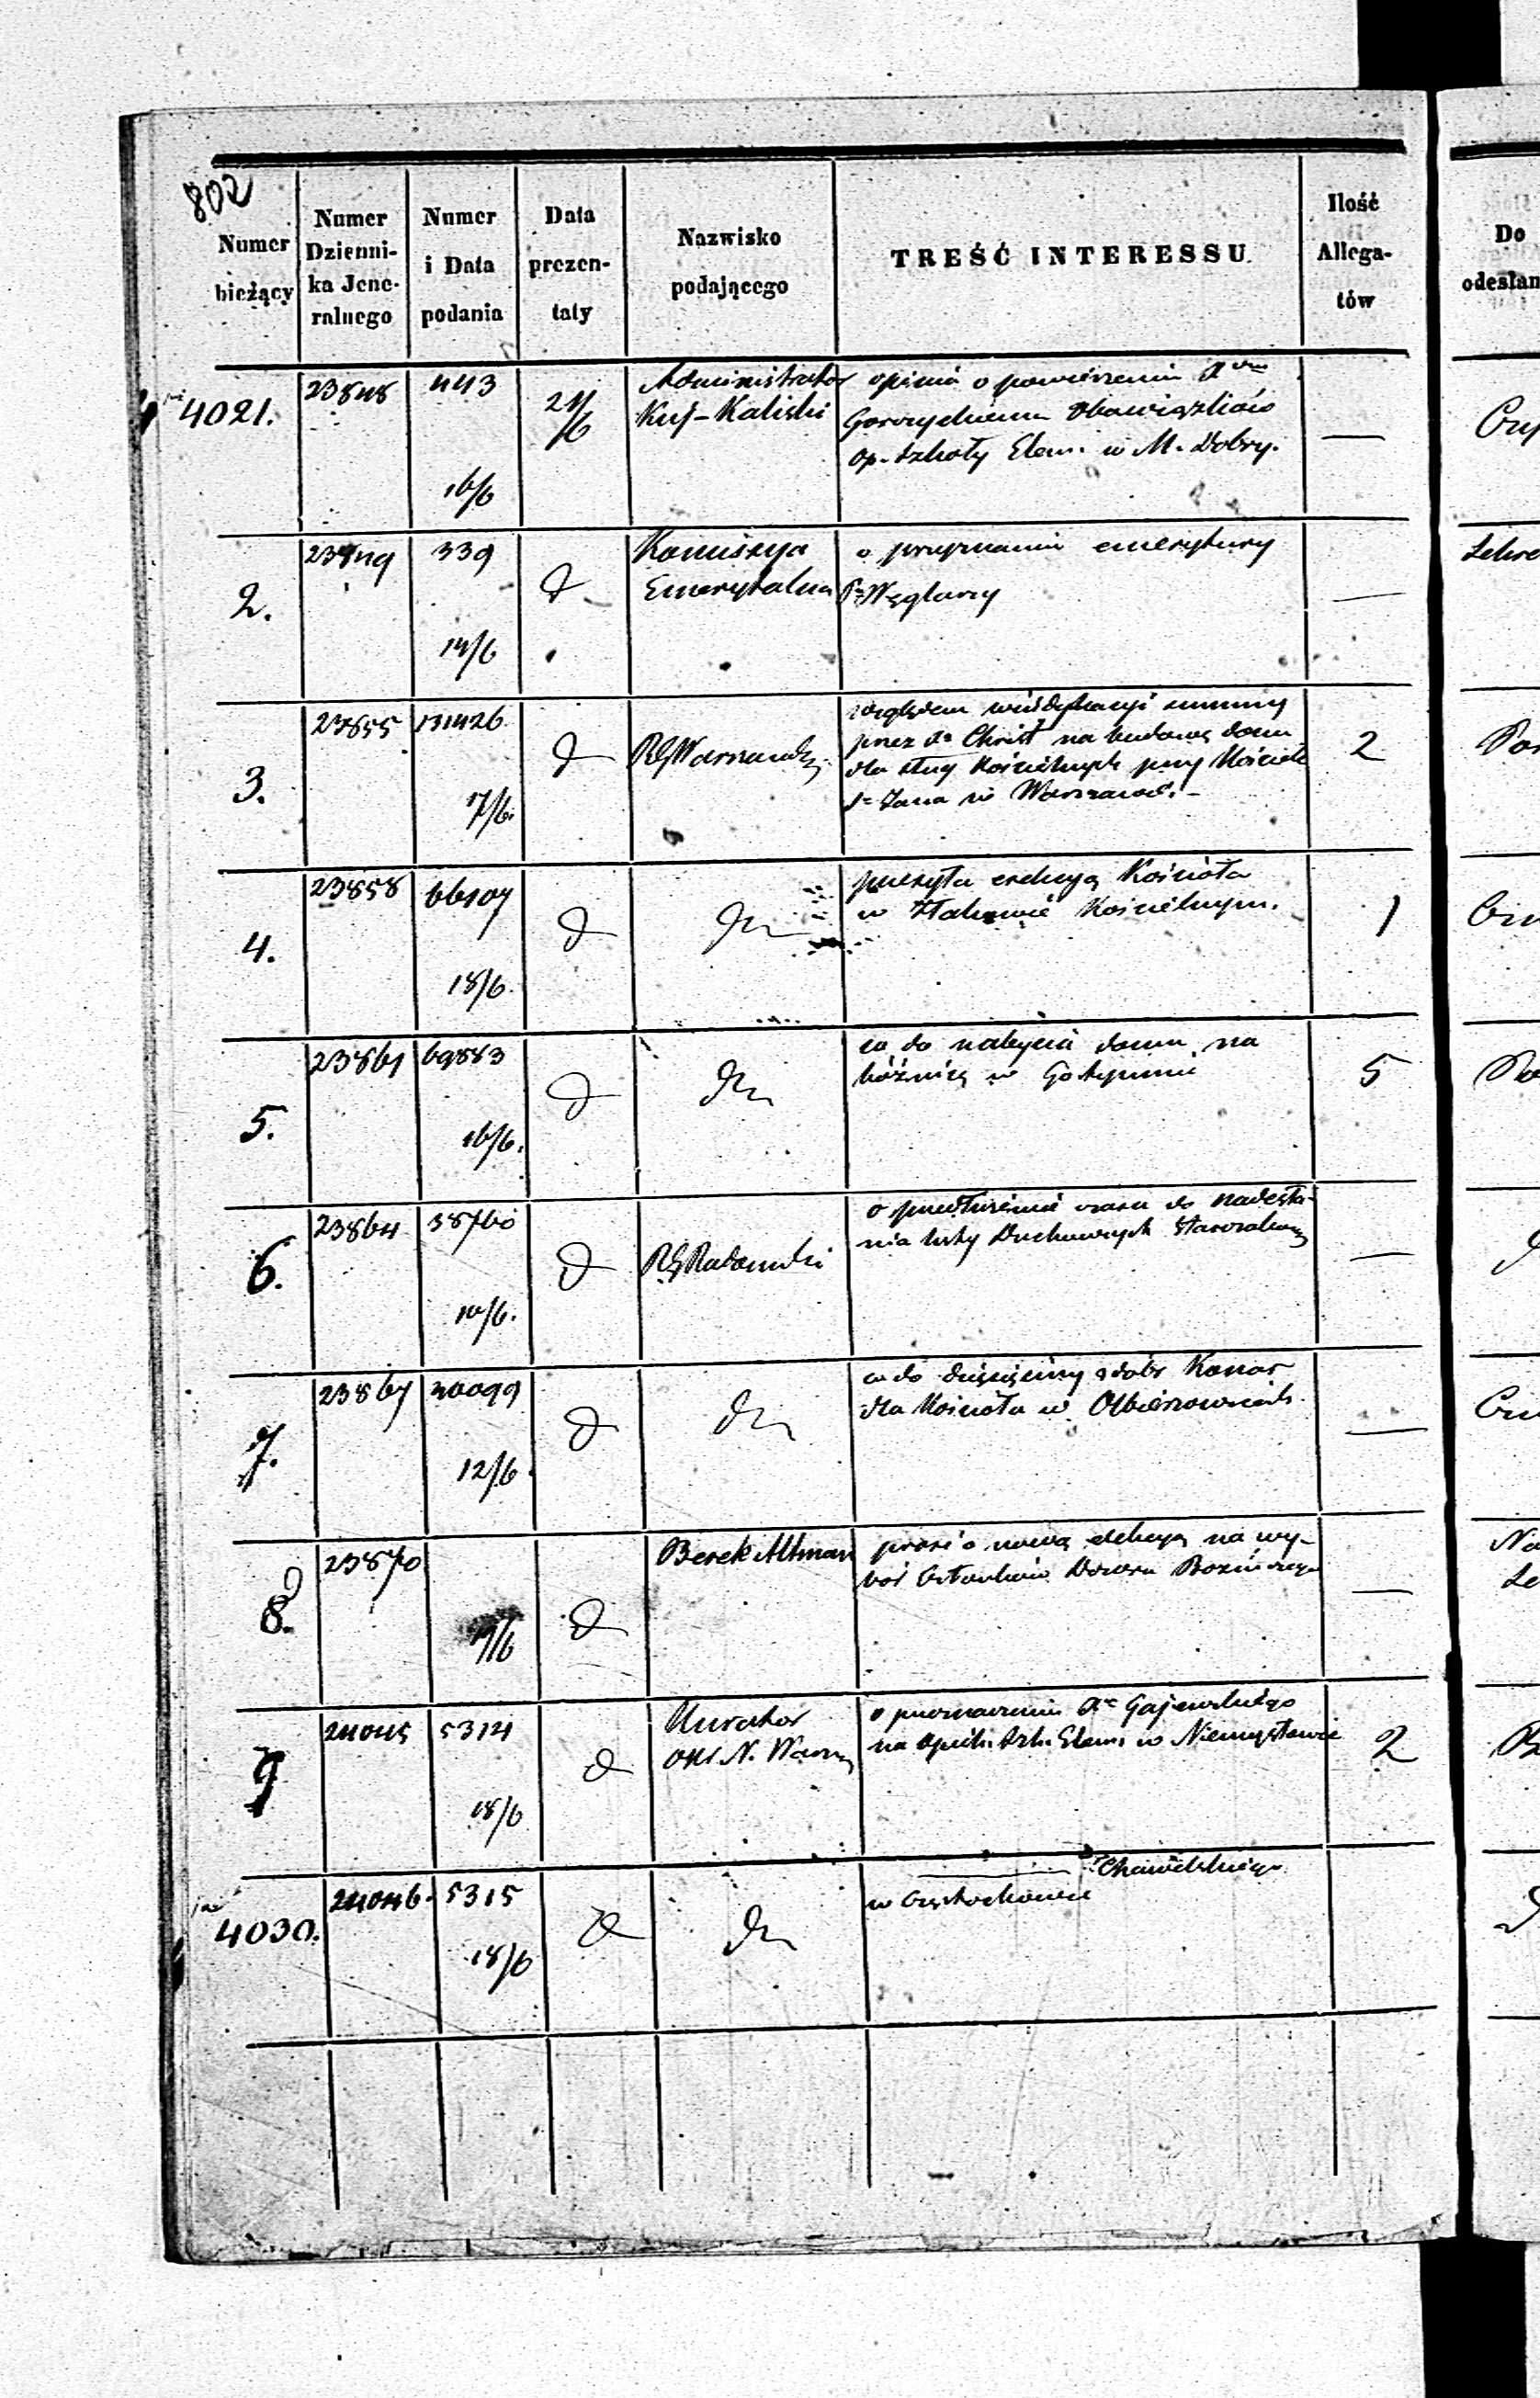 802
Numer bieżący
Numer Dzienni- ka Jene- ralnego
Numer i Data podania
Data prezen- taty
Nazwisko podającego
TREŚĆ INTERESSU.
Ilość Allega- tów
Do odesłan
4021.
23848
443
16/6
21/6
Administrator
Kuj-Kaliski
opinia o powierzeniu
obowiązków
op. szkoły Elem. w M. Dobry.
—
2.
339
14/6
Komissya
Emerytalna
o przyznanie emerytury
Węglarzy
—
3.
23855
131426
17/6.
RG Warszawski
względem summy
przez Christ na budowę domu
dla sług Kościelnych przy Kościele
Jana w Warszawie. –
2
4.
23858
66107
18/6.
przesyła erekcyą Kościoła
w Złakowie Kościelnym.
1
5.
23861
69883
16/6.
co do nabycia domu na
bóżnicę w Gostyninie
5
6.
23864
38760
10/6.
RG Radomski
o przedłużenie czasu do nadesła-
nia listy Duchownych
—
7.
23867
30099
12/6.
co do dziesięciny z dóbr Konar
dla Kościoła w Olbierzowicach.
—
8.
23870
17/6
Berek Altman
prosi o nową elekcyą na wy-
bór Członków Dozoru Bożniczego
—
9
24045
5314
18/6
Kurator
Okr. N. Warsz
o przeznaczeniu Gajewskiego
na opiek. szk. Elem. w Niemysłowie
2
4030.
24046.
5315
18/6
w Częstochowie